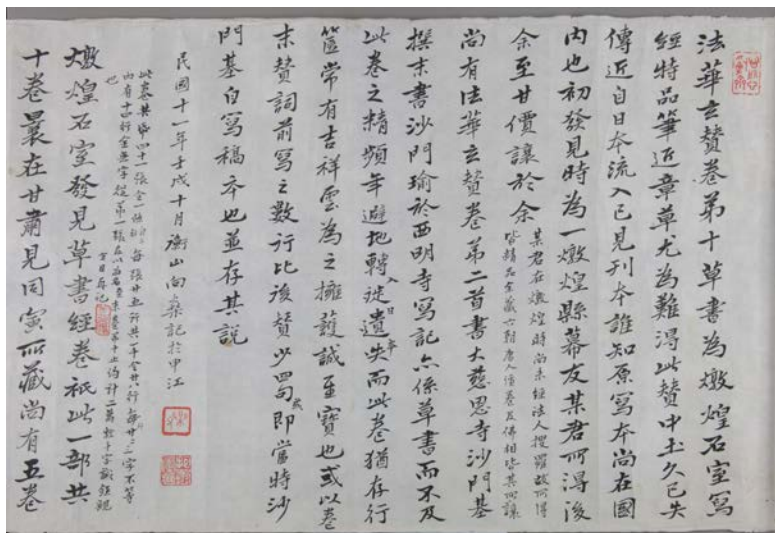 法華玄贊卷第十草書為燉煌石室寫
經特品筆近章草尤為難得此贊中土久已失
傳近自日本流入已見刊本誰知原寫本尚在國
內也初發見時為一燉煌縣幕友某君所得後
余至甘價讓於余
某君在燉煌時尚未經法人搜羅故所得
皆精品余藏六朝唐人項卷及佛相皆其所讓
尚有法華玄贊卷第二首書大慈恩寺沙門基
撰末書沙門瑜於西明寺寫記亦係草書而不及
此卷之精頻年避地轉徙遺失而此卷猶存行
入日本
篋常有吉祥雲為之擁護誠至寶也或以卷
末贊詞前寫之數行比後贊少四句
即當時沙
門基自寫稿本也並存其說
民國十一年壬戌十月衡山向燊記於申江
此卷共四十一張每張廿五行共一千
行每廿二三字不等
內有十四行全無字從第一張
也
同日再記
燉煌石室發見草書經卷祇此一部共
十卷曩在甘肅見同寅所藏尚有五卷